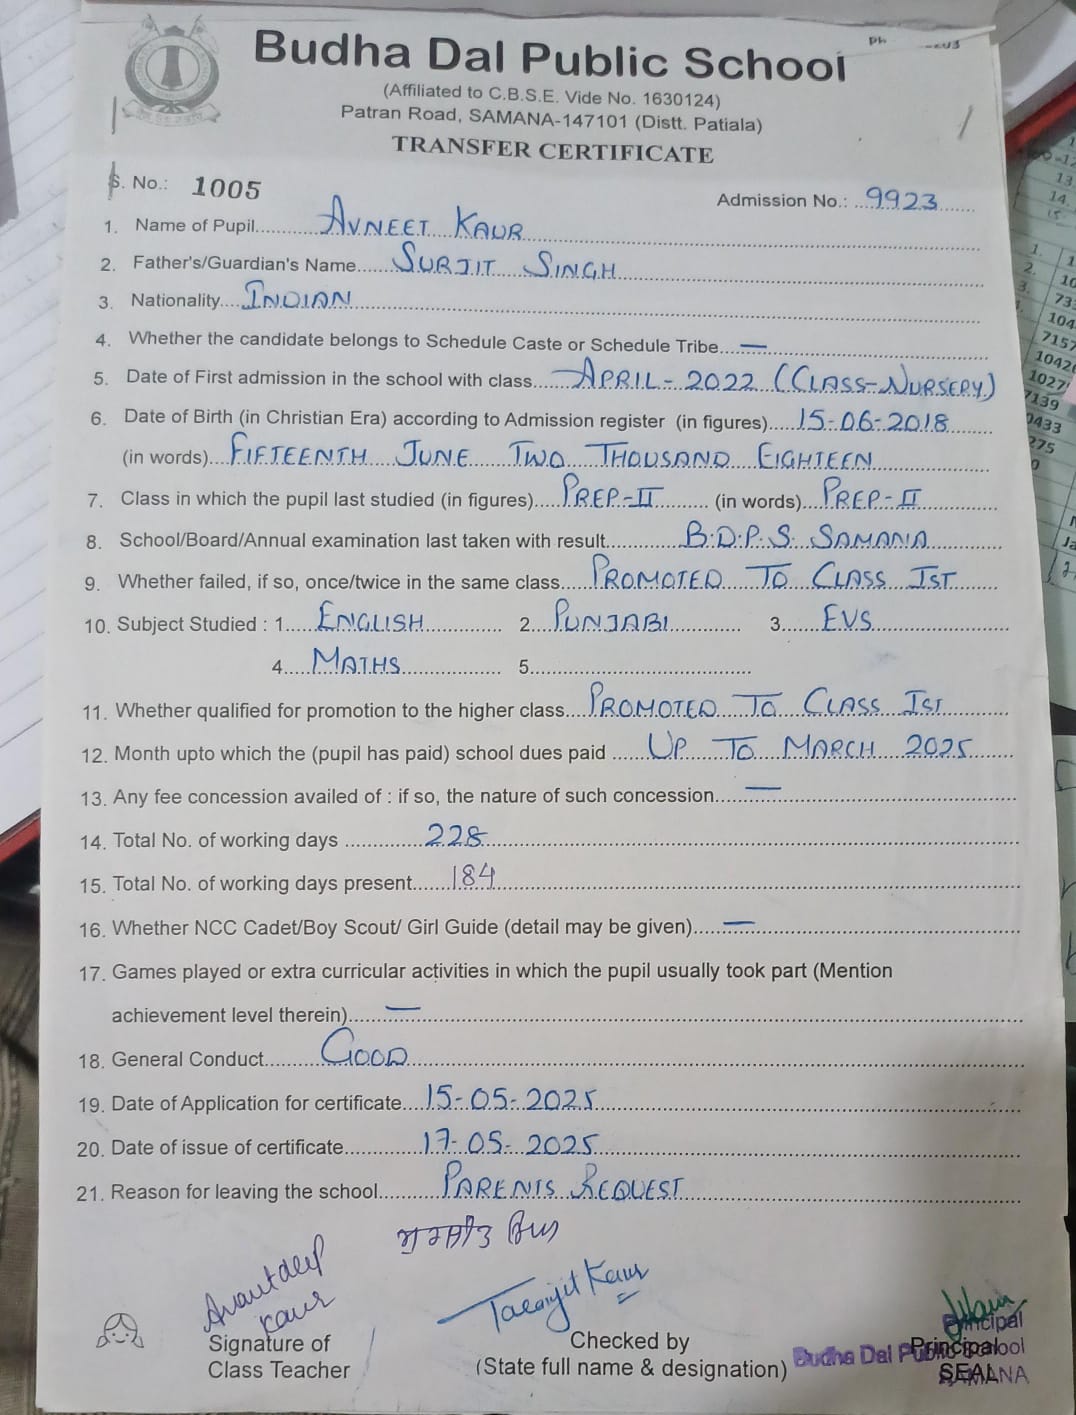 Budha Dal Public School
(Affiliated to C.B.S.E. Vide No. 1630124)
Patran Road, SAMANA-147101 (Distt. Patiala)
TRANSFER CERTIFICATE
S. No.: 1005
Admission No.: 9923
1. Name of Pupil AVNEET KAUR
2. Father's/Guardian's Name SURJIT SINGH
3. Nationality INDIAN
4. Whether the candidate belongs to Schedule Caste or Schedule Tribe —
5. Date of First admission in the school with class APRIL-2022 (CLASS-NURSERY)
6. Date of Birth (in Christian Era) according to Admission register (in figures) 15-06-2018
(in words) FIFTEENTH JUNE TWO THOUSAND EIGHTEEN
7. Class in which the pupil last studied (in figures) PREP-II (in words) PREP-II
8. School/Board/Annual examination last taken with result B.D.P.S. SAMANA
9. Whether failed, if so, once/twice in the same class PROMOTED TO CLASS IST
10. Subject Studied : 1 ENGLISH 2 PUNJABI 3 EVS
4 MATHS 5
11. Whether qualified for promotion to the higher class PROMOTED TO CLASS IST
12. Month upto which the (pupil has paid) school dues paid UP TO MARCH 2025
13. Any fee concession availed of : if so, the nature of such concession —
14. Total No. of working days 228
15. Total No. of working days present 184
16. Whether NCC Cadet/Boy Scout/ Girl Guide (detail may be given) —
17. Games played or extra curricular activities in which the pupil usually took part (Mention
achievement level therein) —
18. General Conduct GOOD
19. Date of Application for certificate 15-05-2025
20. Date of issue of certificate 17-05-2025
21. Reason for leaving the school PARENTS REQUEST
Kaur
Kaur
Signature of
Class Teacher
Checked by
(State full name & designation)
Principal
Budha Dal Public School
SAMANA
Principal
SEAL